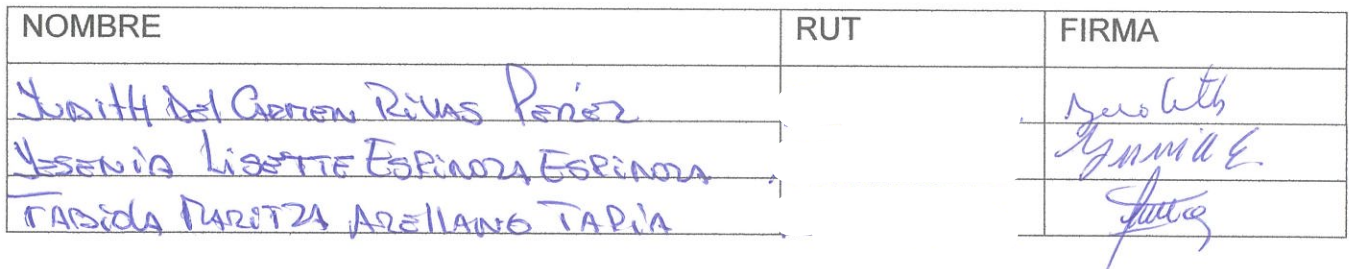 NOMBRE RUT FIRMA
Judith Del Carmen Rivas Perez
Yesenia Lisette Espinoza Espinoza Yesenia E.
Tabida Maritza Arellano Tapia